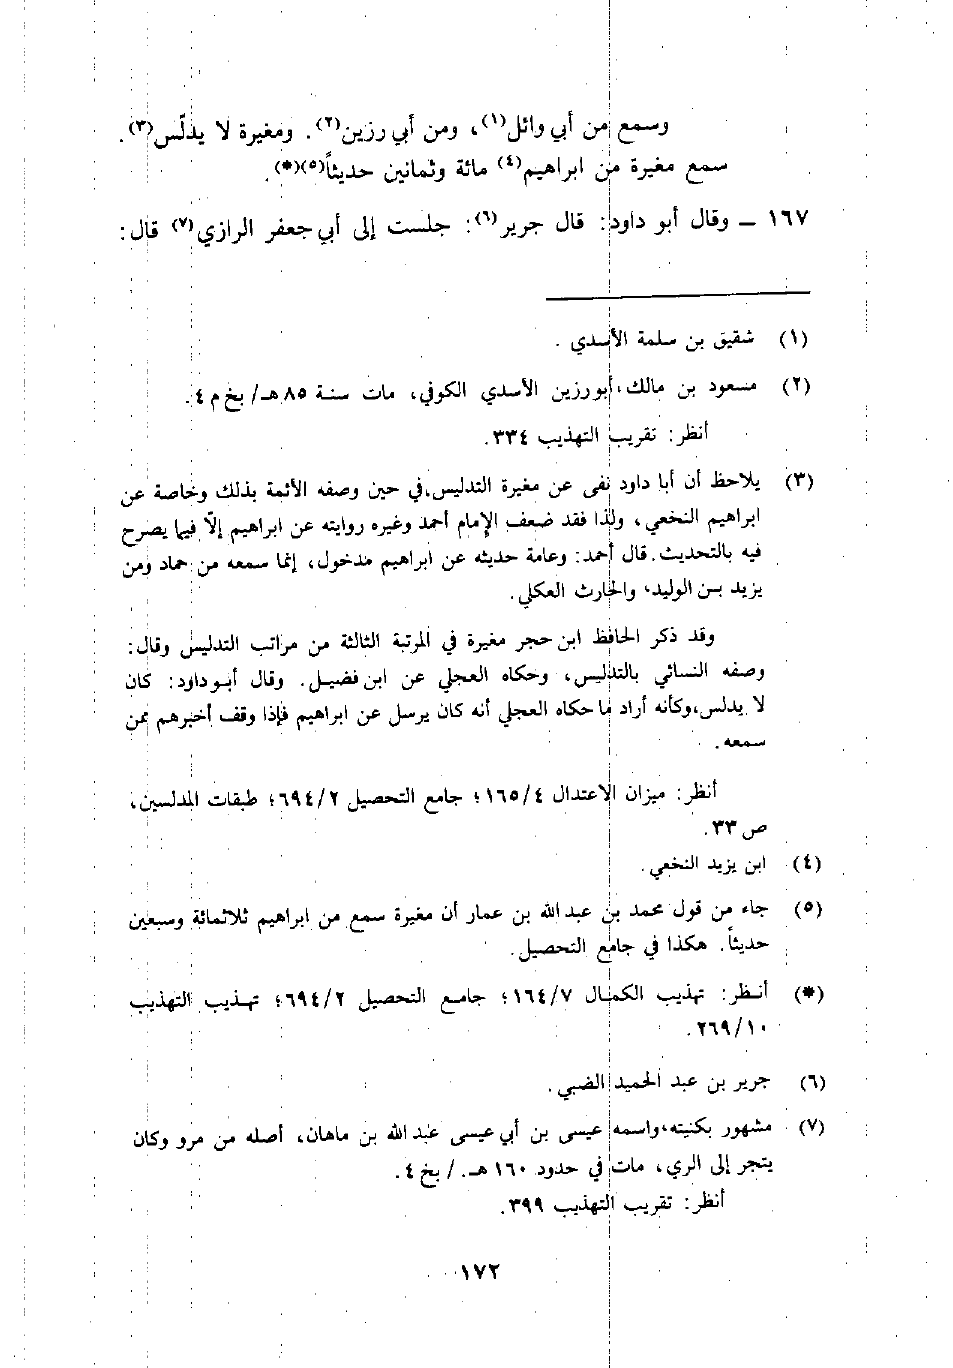 وسمع من أبي وائل(١)، ومن أبي رزين(٢). ومغيرة لا يدلّس(٣).
سمع مغيرة من ابراهيم(٤) مائة وثمانين حديثاً(٥)(*).
١٦٧ ــ وقال أبو داود: قال جرير(٦): جلست إلى أبي جعفر الرازي(٧) قال:
(١) شقيق بن سلمة الأسدي.
(٢) مسعود بن مالك، أبو رزين الأسدي الكوفي، مات سنة ٨٥ هـ/ بخ م ٤.
أنظر: تقريب التهذيب ٣٣٤.
(٣) يلاحظ أن أبا داود نفى عن مغيرة التدليس، في حين وصفه الأئمة بذلك وخاصة عن
ابراهيم النخعي، ولذا فقد ضعف الإمام أحمد وغيره روايته عن ابراهيم إلّا فيما يصرح
فيه بالتحديث. قال أحمد: وعامة حديثه عن ابراهيم مدخول، إنما سمعه من حماد ومن
يزيد بن الوليد، والحارث العكلي.
وقد ذكر الحافظ ابن حجر مغيرة في المرتبة الثالثة من مراتب التدليس وقال:
وصفه النسائي بالتدليس، وحكاه العجلي عن ابن فضيل. وقال أبو داود: كان
لا يدلس، وكأنه أراد ما حكاه العجلي أنه كان يرسل عن ابراهيم فإذا وقف أخبرهم ممن
سمعه.
أنظر: ميزان الاعتدال ١٦٥/٤؛ جامع التحصيل ٦٩٤/٢؛ طبقات المدلسين،
ص ٣٣.
(٤) ابن يزيد النخعي.
(٥) جاء من قول محمد بن عبد الله بن عمار أن مغيرة سمع من ابراهيم ثلاثمائة وسبعين
حديثاً. هكذا في جامع التحصيل.
(*) أنظر: تهذيب الكمال ١٦٤/٧؛ جامع التحصيل ٦٩٤/٢؛ تهذيب التهذيب
٢٦٩/١٠.
(٦) جرير بن عبد الحميد الضبي.
(٧) مشهور بكنيته، واسمه عيسى بن أبي عيسى عبد الله بن ماهان، أصله من مرو وكان
يتجر إلى الري، مات في حدود ١٦٠ هـ. / بخ ٤.
أنظر: تقريب التهذيب ٣٩٩.
١٧٢